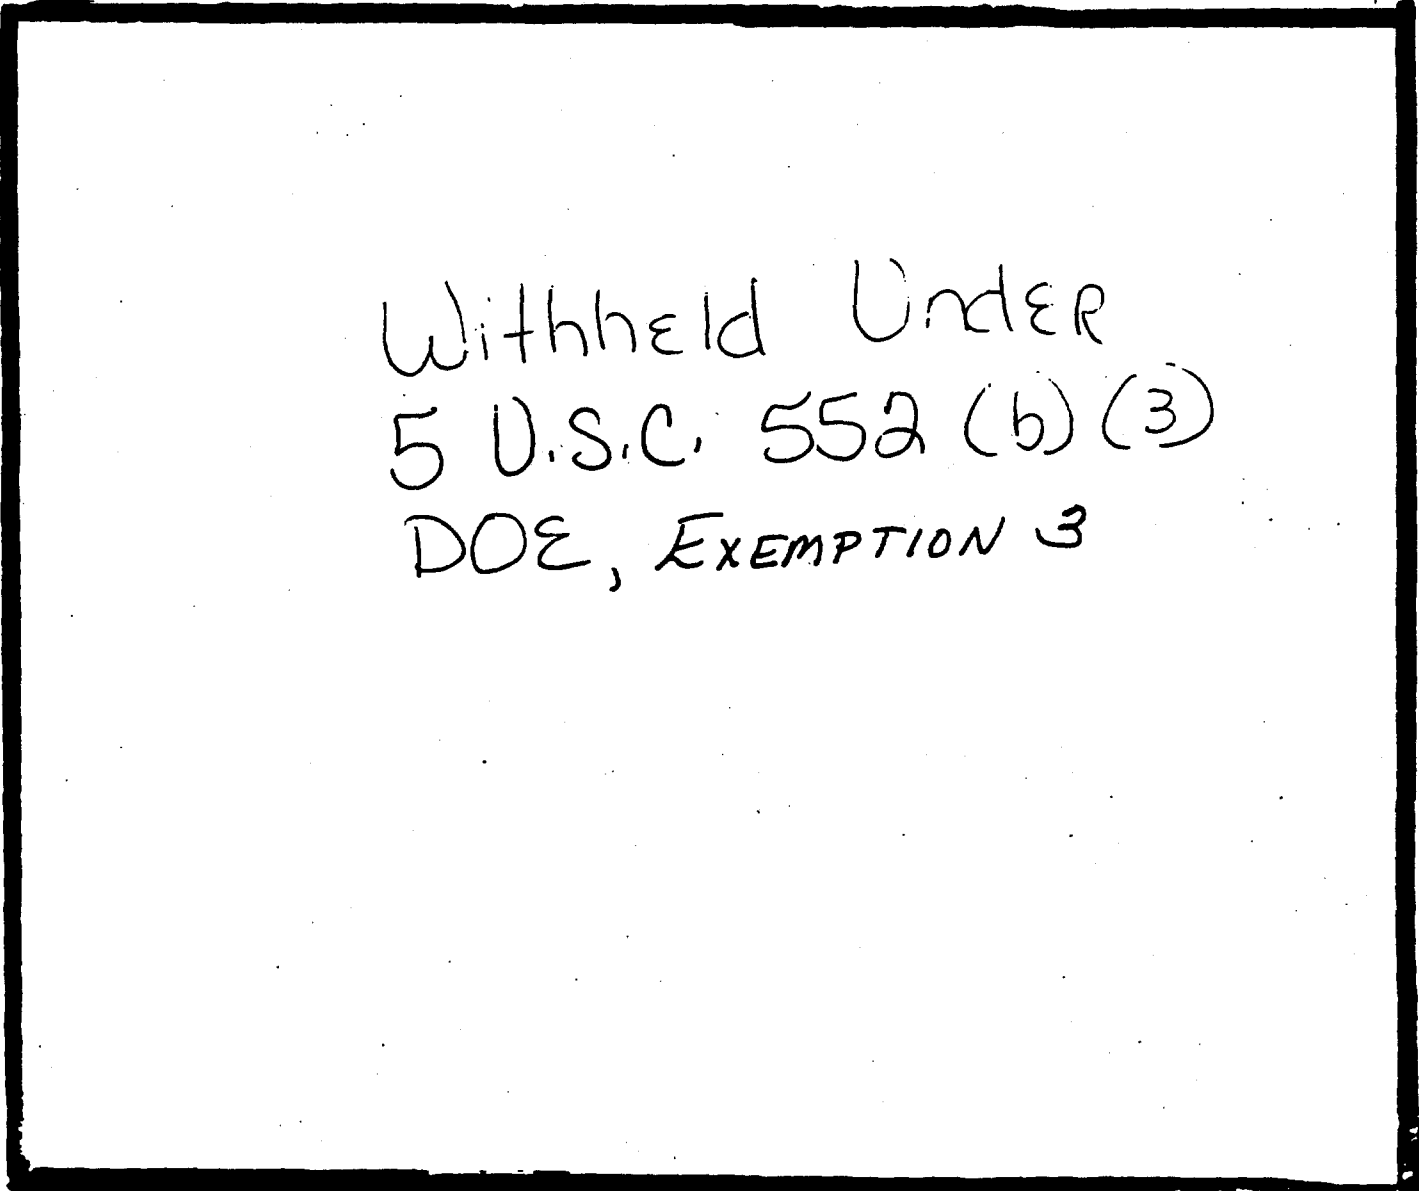 Withheld Under
5 U.S.C. 552 (b) (3)
DOE, EXEMPTION 3